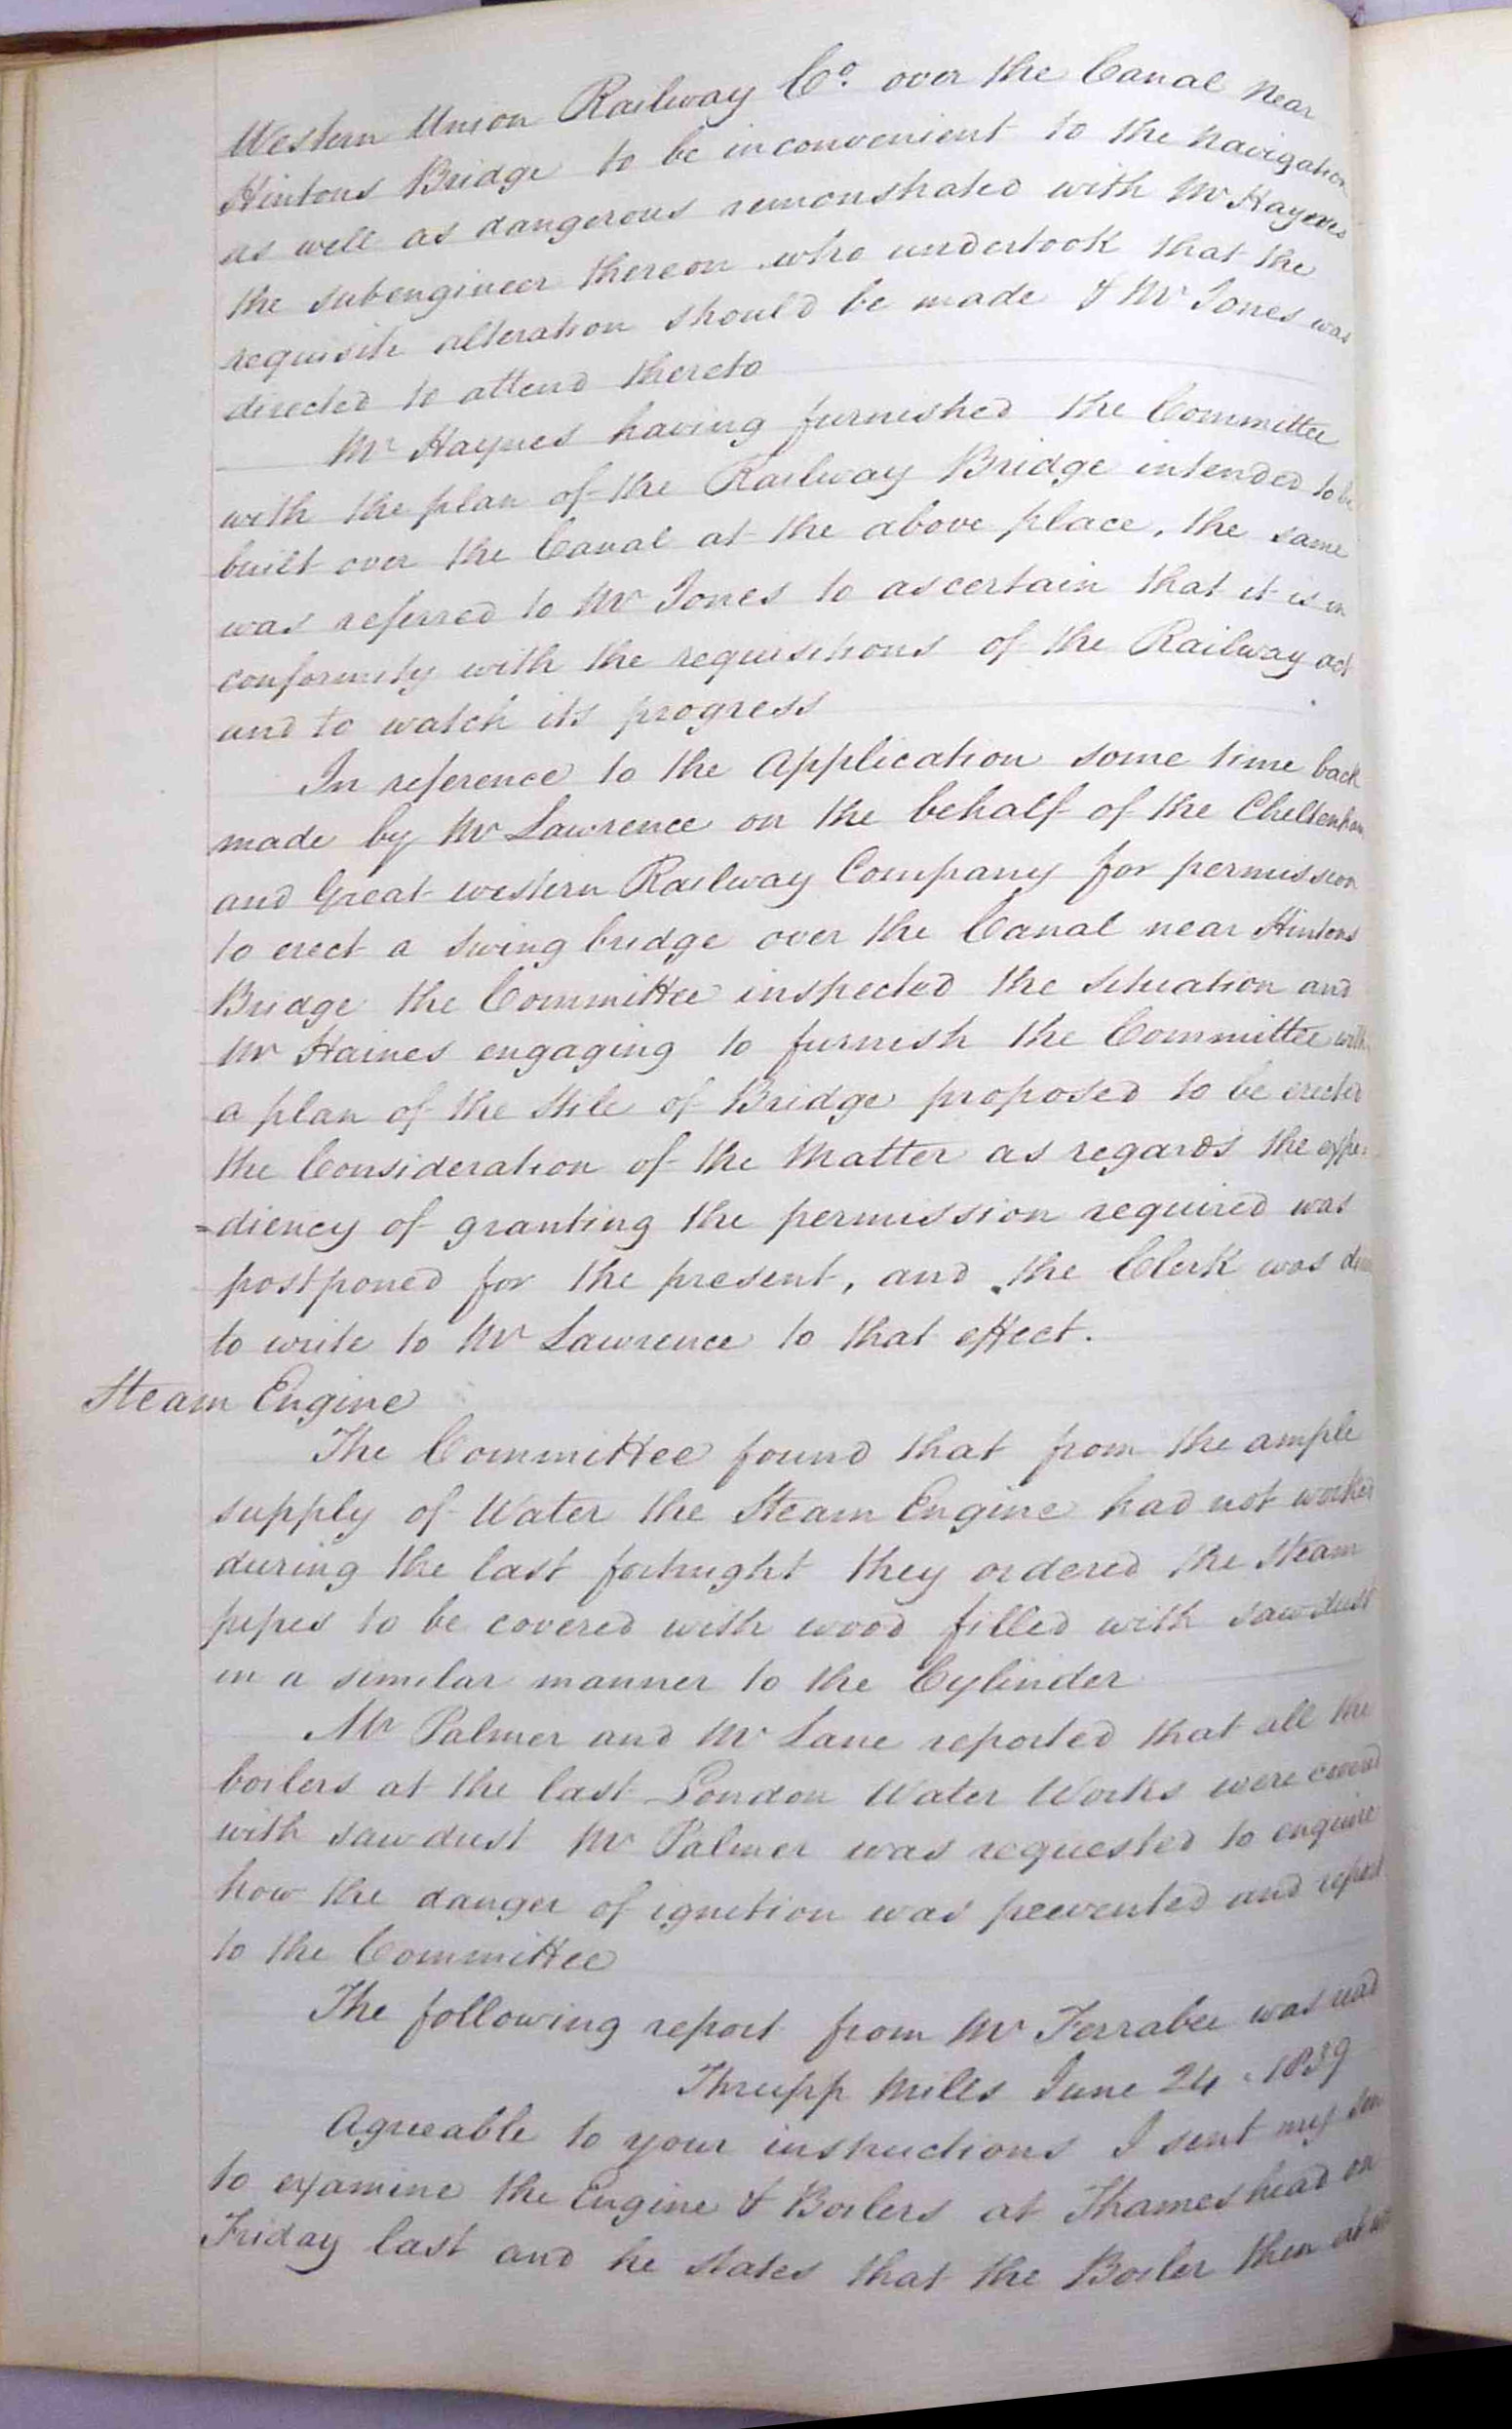 Western Union Railway Co. over the Canal near
Hintons Bridge to be inconvenient to the Navigation
as well as dangerous remonstrated with Mr Haynes
the subengineer thereon who undertook that the
requisite alteration should be made & Mr Jones was
directed to attend thereto
Mr Haynes having furnished the Committee
with the plan of the Railway Bridge intended to be
built over the Canal at the above place, the same
was referred to Mr Jones to ascertain that it is in
conformity with the requisitions of the Railway act
and to watch its progress
In reference to the Application some time back
made by Mr Lawrence on the behalf of the Cheltenham
and Great western Railway Company for permission
to erect a swing bridge over the Canal near Hintons
Bridge the Committee inspected the situation and
Mr Haines engaging to furnish the Committee with
a plan of the Stile of Bridge proposed to be erected
the Consideration of the Matter as regards the expe=
=diency of granting the permission required was
postponed for the present, and the Clerk was
to write to Mr Lawrence to that effect.
Steam Engine
The Committee found that from the ample
supply of Water the Steam Engine had not worked
during the last fortnight they ordered the Steam
pipes to be covered with wood filled with sawdust
in a similar manner to the Cylinder
Mr Palmer and Mr Lane reported that all the
boilers at the last London Water Works were covered
with sawdust Mr Palmer was requested to enquire
how the danger of ignition was prevented and report
to the Committee
The following report from Mr Ferrabee was read
Thrupp Mills June 24 1839
Agreeable to your instructions I sent my Son
to examine the Engine & Boilers at Thameshead on
Friday last and he states that the Boiler then at